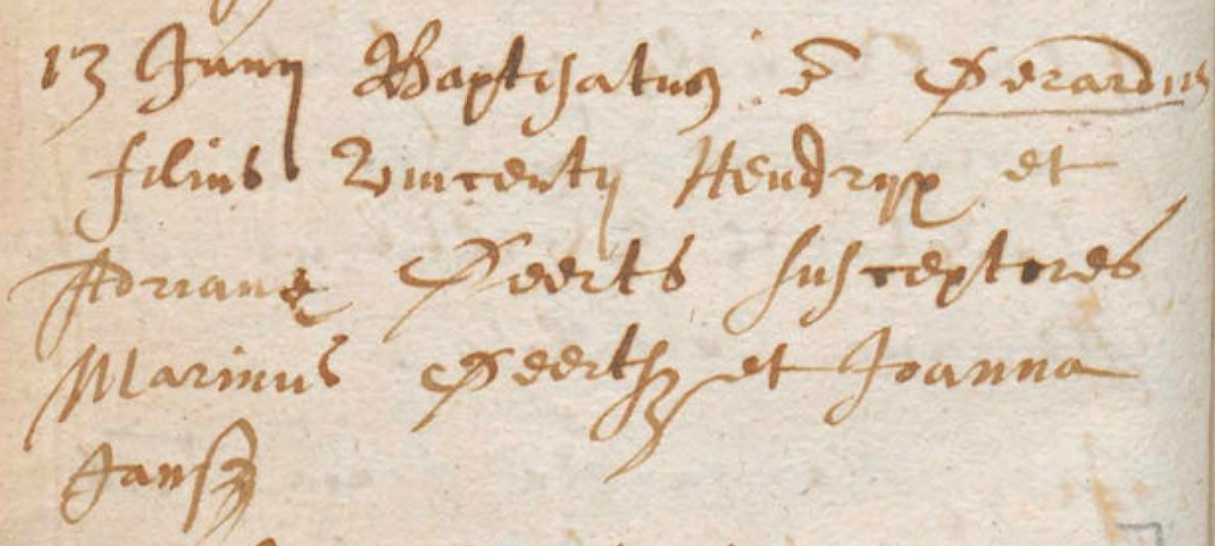 13 Junij Baptisatus ē Gerardus
filius Vincentij Hendryx et
Adrianę Geerts susceptores
Marinus Geertsz et Joanna
Jansz